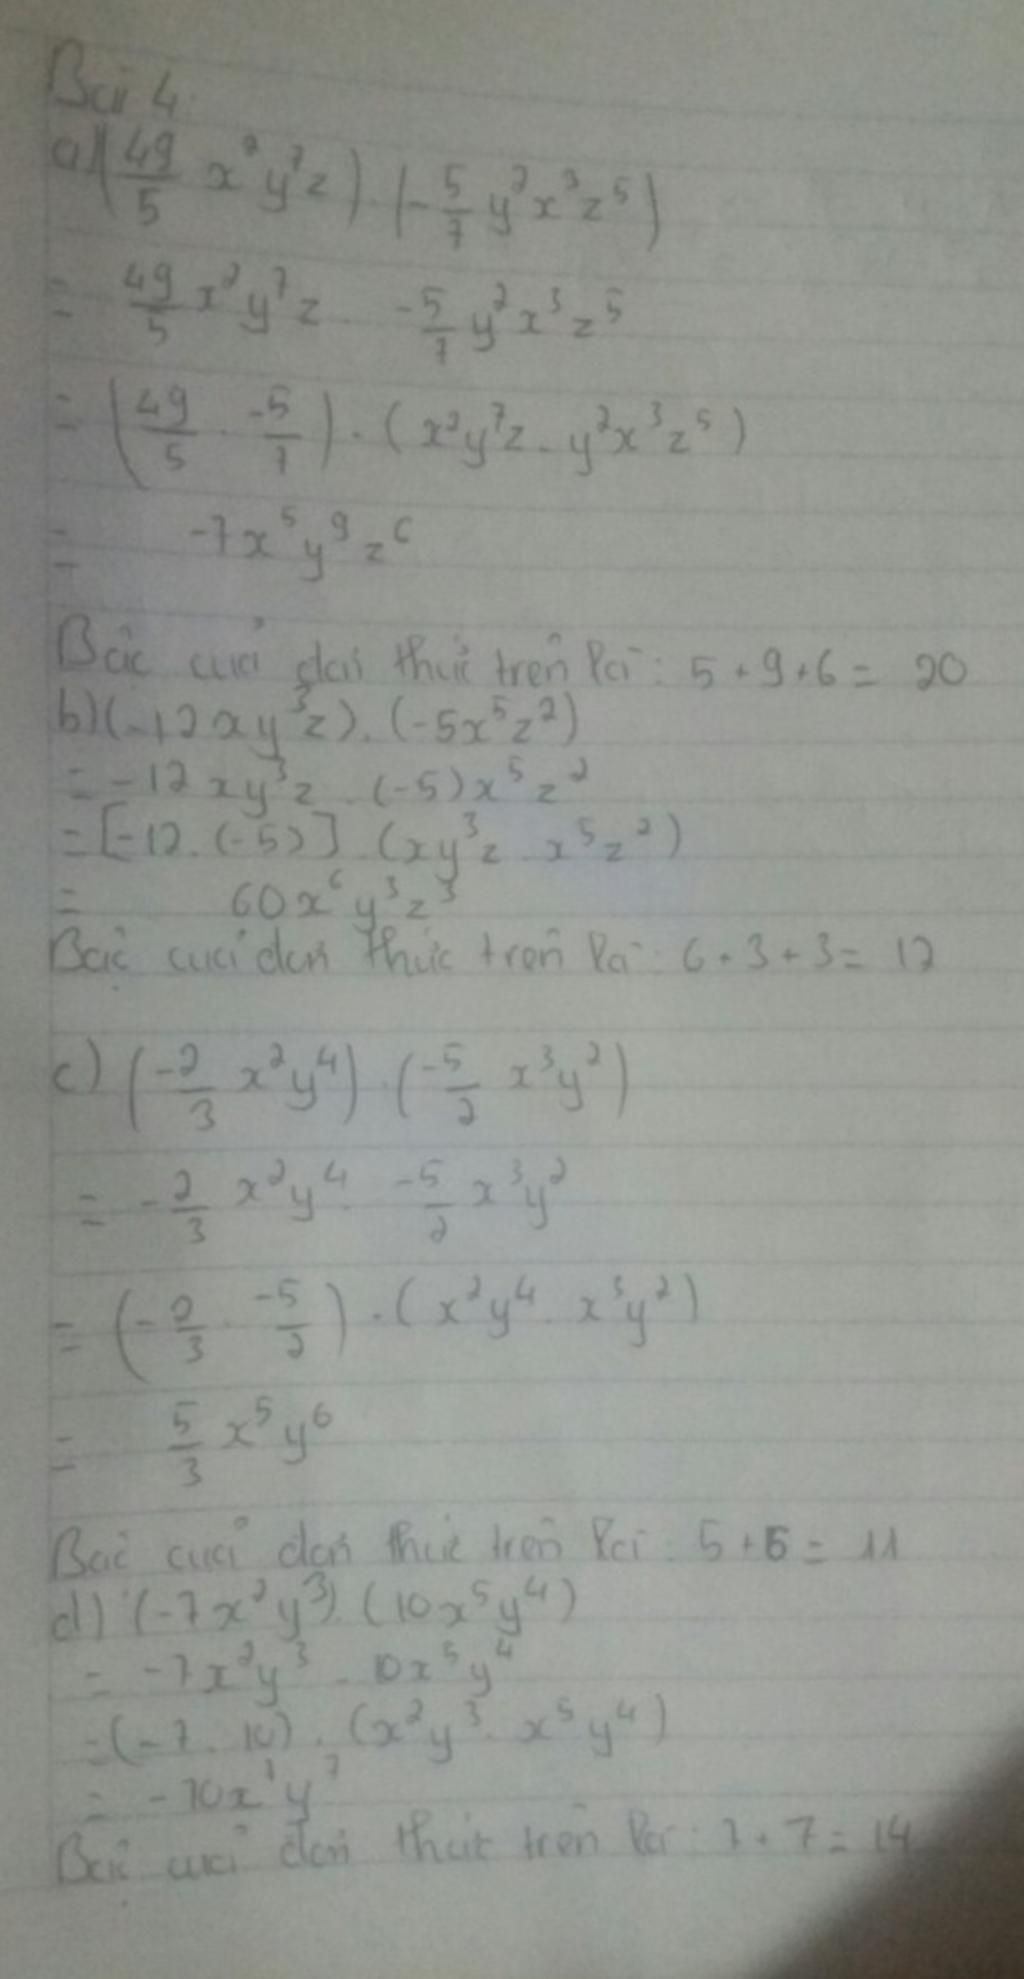 Bài 4:
a) (49/5 x²y⁷z) . (-5/7 y²x³z⁵)
= 49/5 x²y⁷z . -5/7 y²x³z⁵
= (49/5 . -5/7) . (x²y⁷z . y²x³z⁵)
= -7x⁵y⁹z⁶
Bậc của đơn thức trên là : 5 + 9 + 6 = 20
b) (-12xy³z) . (-5x⁵z²)
= -12xy³z . (-5)x⁵z²
= [-12 . (-5)] . (xy³z . x⁵z²)
= 60x⁶y³z³
Bậc của đơn thức trên là : 6 + 3 + 3 = 12
c) (-2/3 x²y⁴) . (-5/2 x³y²)
= -2/3 x²y⁴ . -5/2 x³y²
= (-2/3 . -5/2) . (x²y⁴ . x³y²)
= 5/3 x⁵y⁶
Bậc của đơn thức trên là : 5 + 6 = 11
d) (-7x²y³) . (10x⁵y⁴)
= -7x²y³ . 10x⁵y⁴
= (-7 . 10) . (x²y³ . x⁵y⁴)
= -70x⁷y⁷
Bậc của đơn thức trên là : 7 + 7 = 14